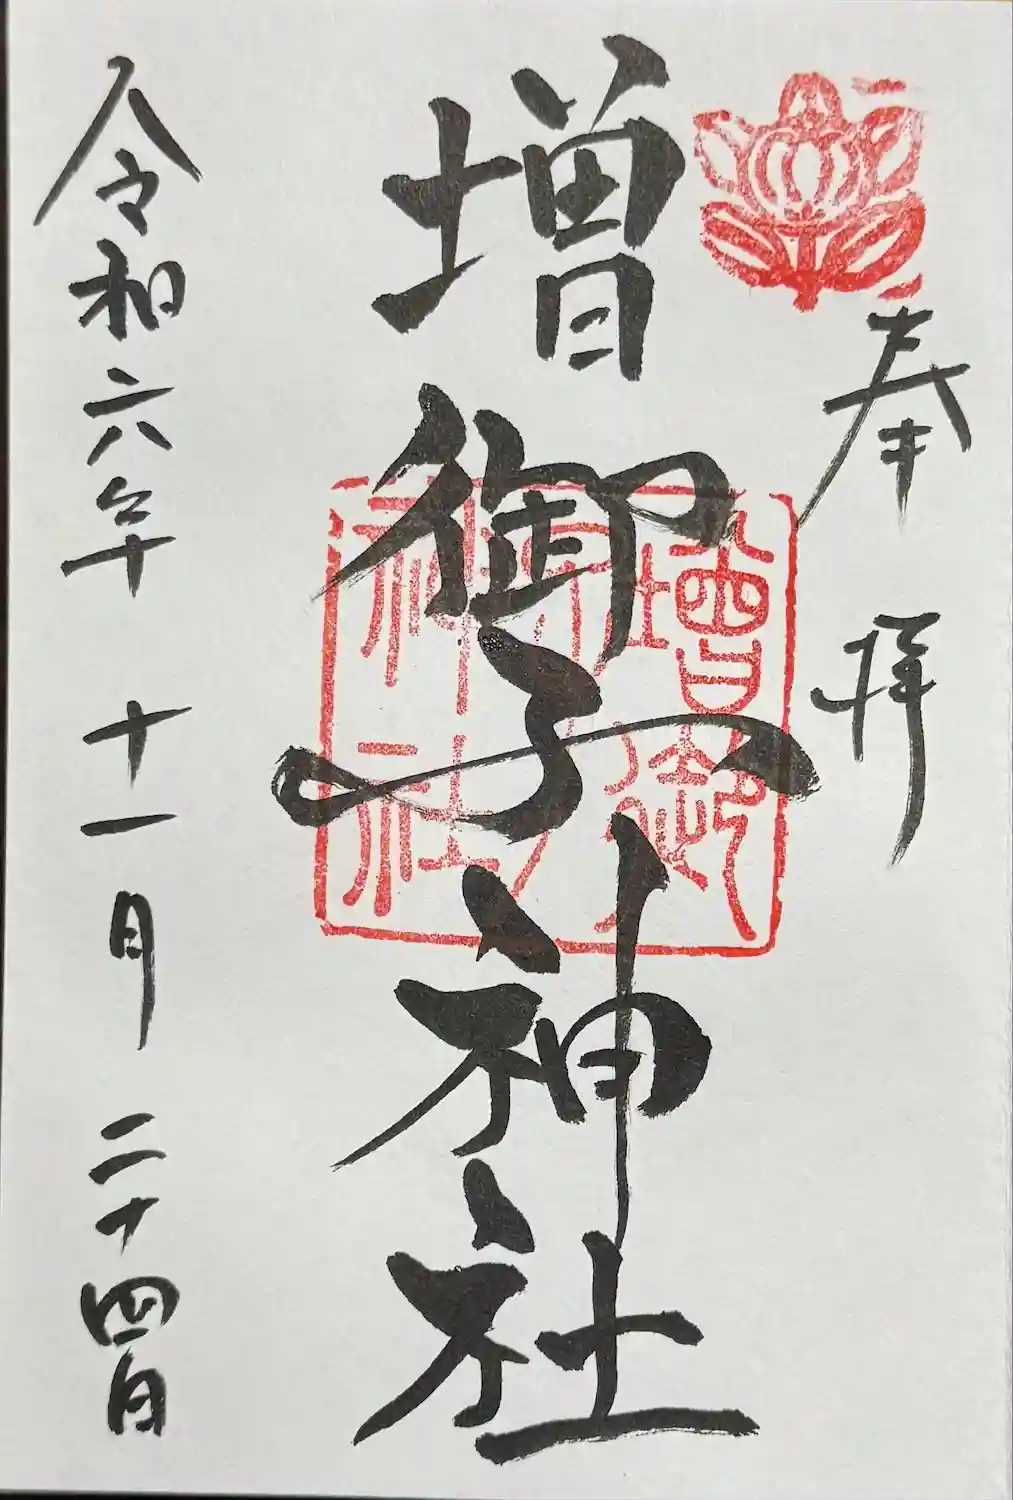 奉拝
増御子神社
増御子神社
令和六年十一月二十四日